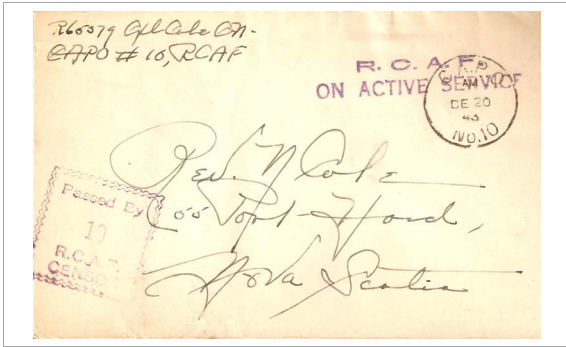 R65379 Cpl Coke C.N.
CAPO # 10, RCAF
R.C.A.F.
ON ACTIVE SERVICE
C.A.P.O
AM
DE 20
43
No.10
Rev. N Coke
Port
Nova Scotia
Passed By
10
R.C.A.F.
CENSOR